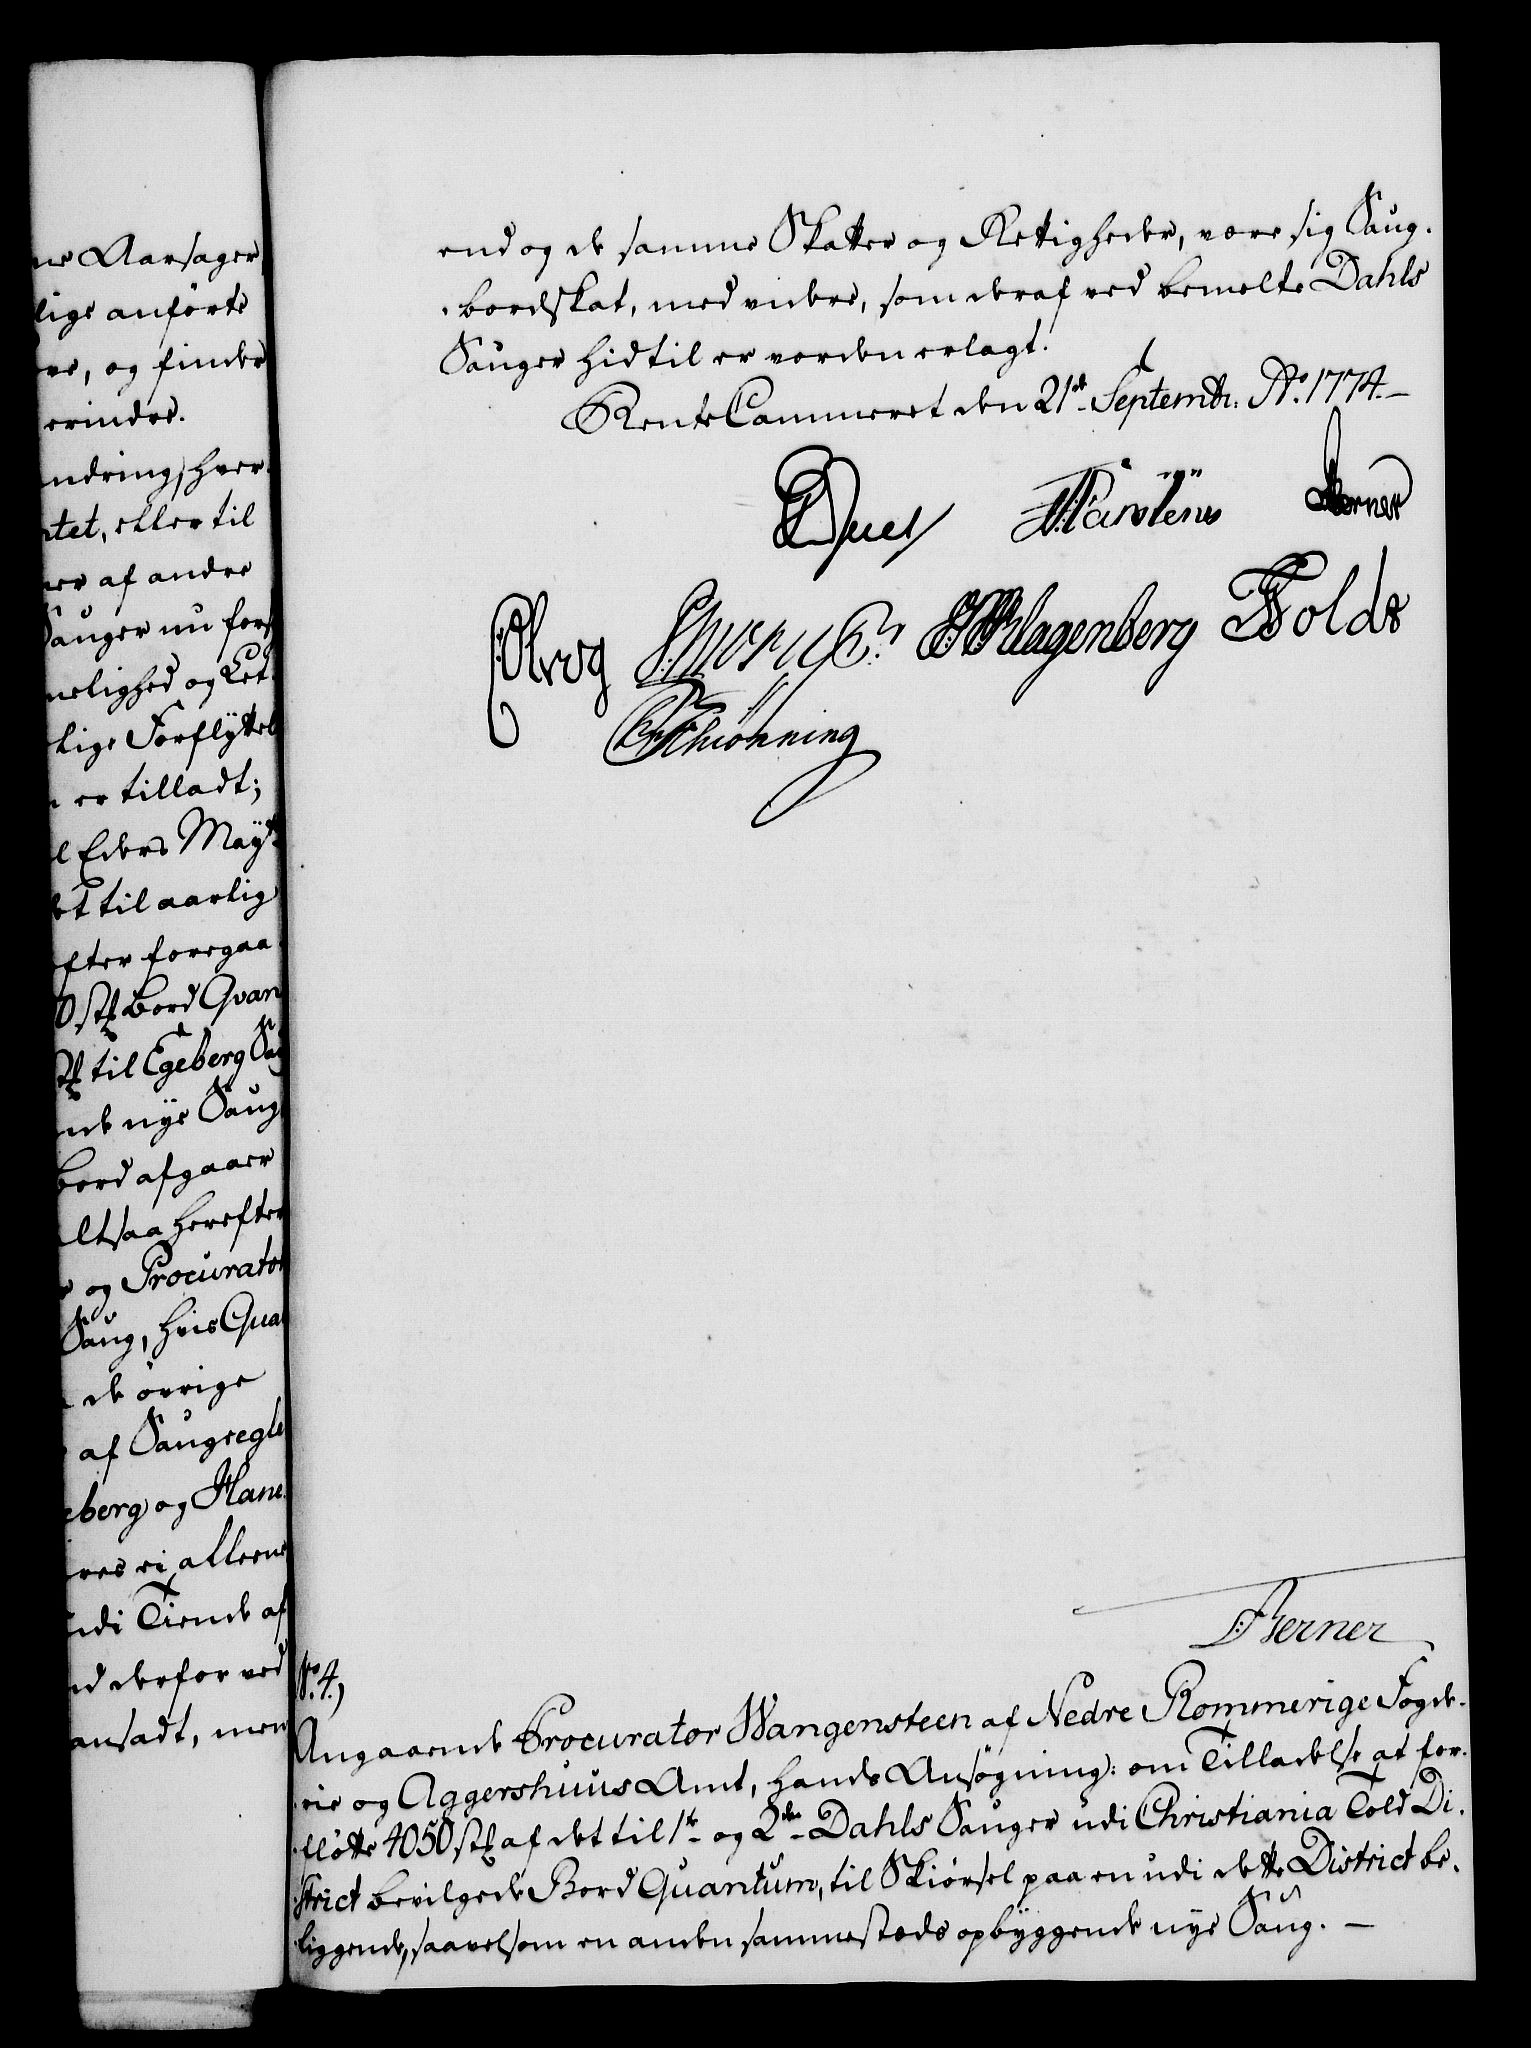 ne Aarsager
lige anførte
re, og finder
erindre.
ndring, hver-
tet, eller til
er af andre
Sauger nu for
melighed og Let-
lige Forflyttel
er tilladt;
l Eders Mayts
et til aarlig
efter foregaa-
0 stk bord Qvan
stk til Egeberg Sau
nde nye Saug
bord afgaaer
altsaa herefter
og Procurator
Saug, hvis Qua
de øvrige
af Saugregle
eberg og Hane-
res ei alleene
udi Tiende af
d derfor ved
ansadt, men
end og de samme Skatter og Rettigheder, være sig Saug-
bordskat, med videre, som deraf ved bemelte Dahls
Sauger hidtil er vorden erlagt.
RenteCammeret den 21de Septembr. Ao. 1774.
Juel Carstens Berner
Olrog Klagenberg Folde
Schiønning
Berner
No. 4,
Angaaende Procurator Wangensteen af Nedre Rommerige Fogde-
rie og Aggershuus Amt, hands Ansøgning: om Tilladelse at for-
fløtte 4050 stk af det til 1te og 2den Dahls Sauger udi Christiania Told Di-
strict bevilgede Bord Quantum, til Skiørsel paa en udi dette District be-
liggende, saavelsom en anden sammesteds opbyggende nye Saug.